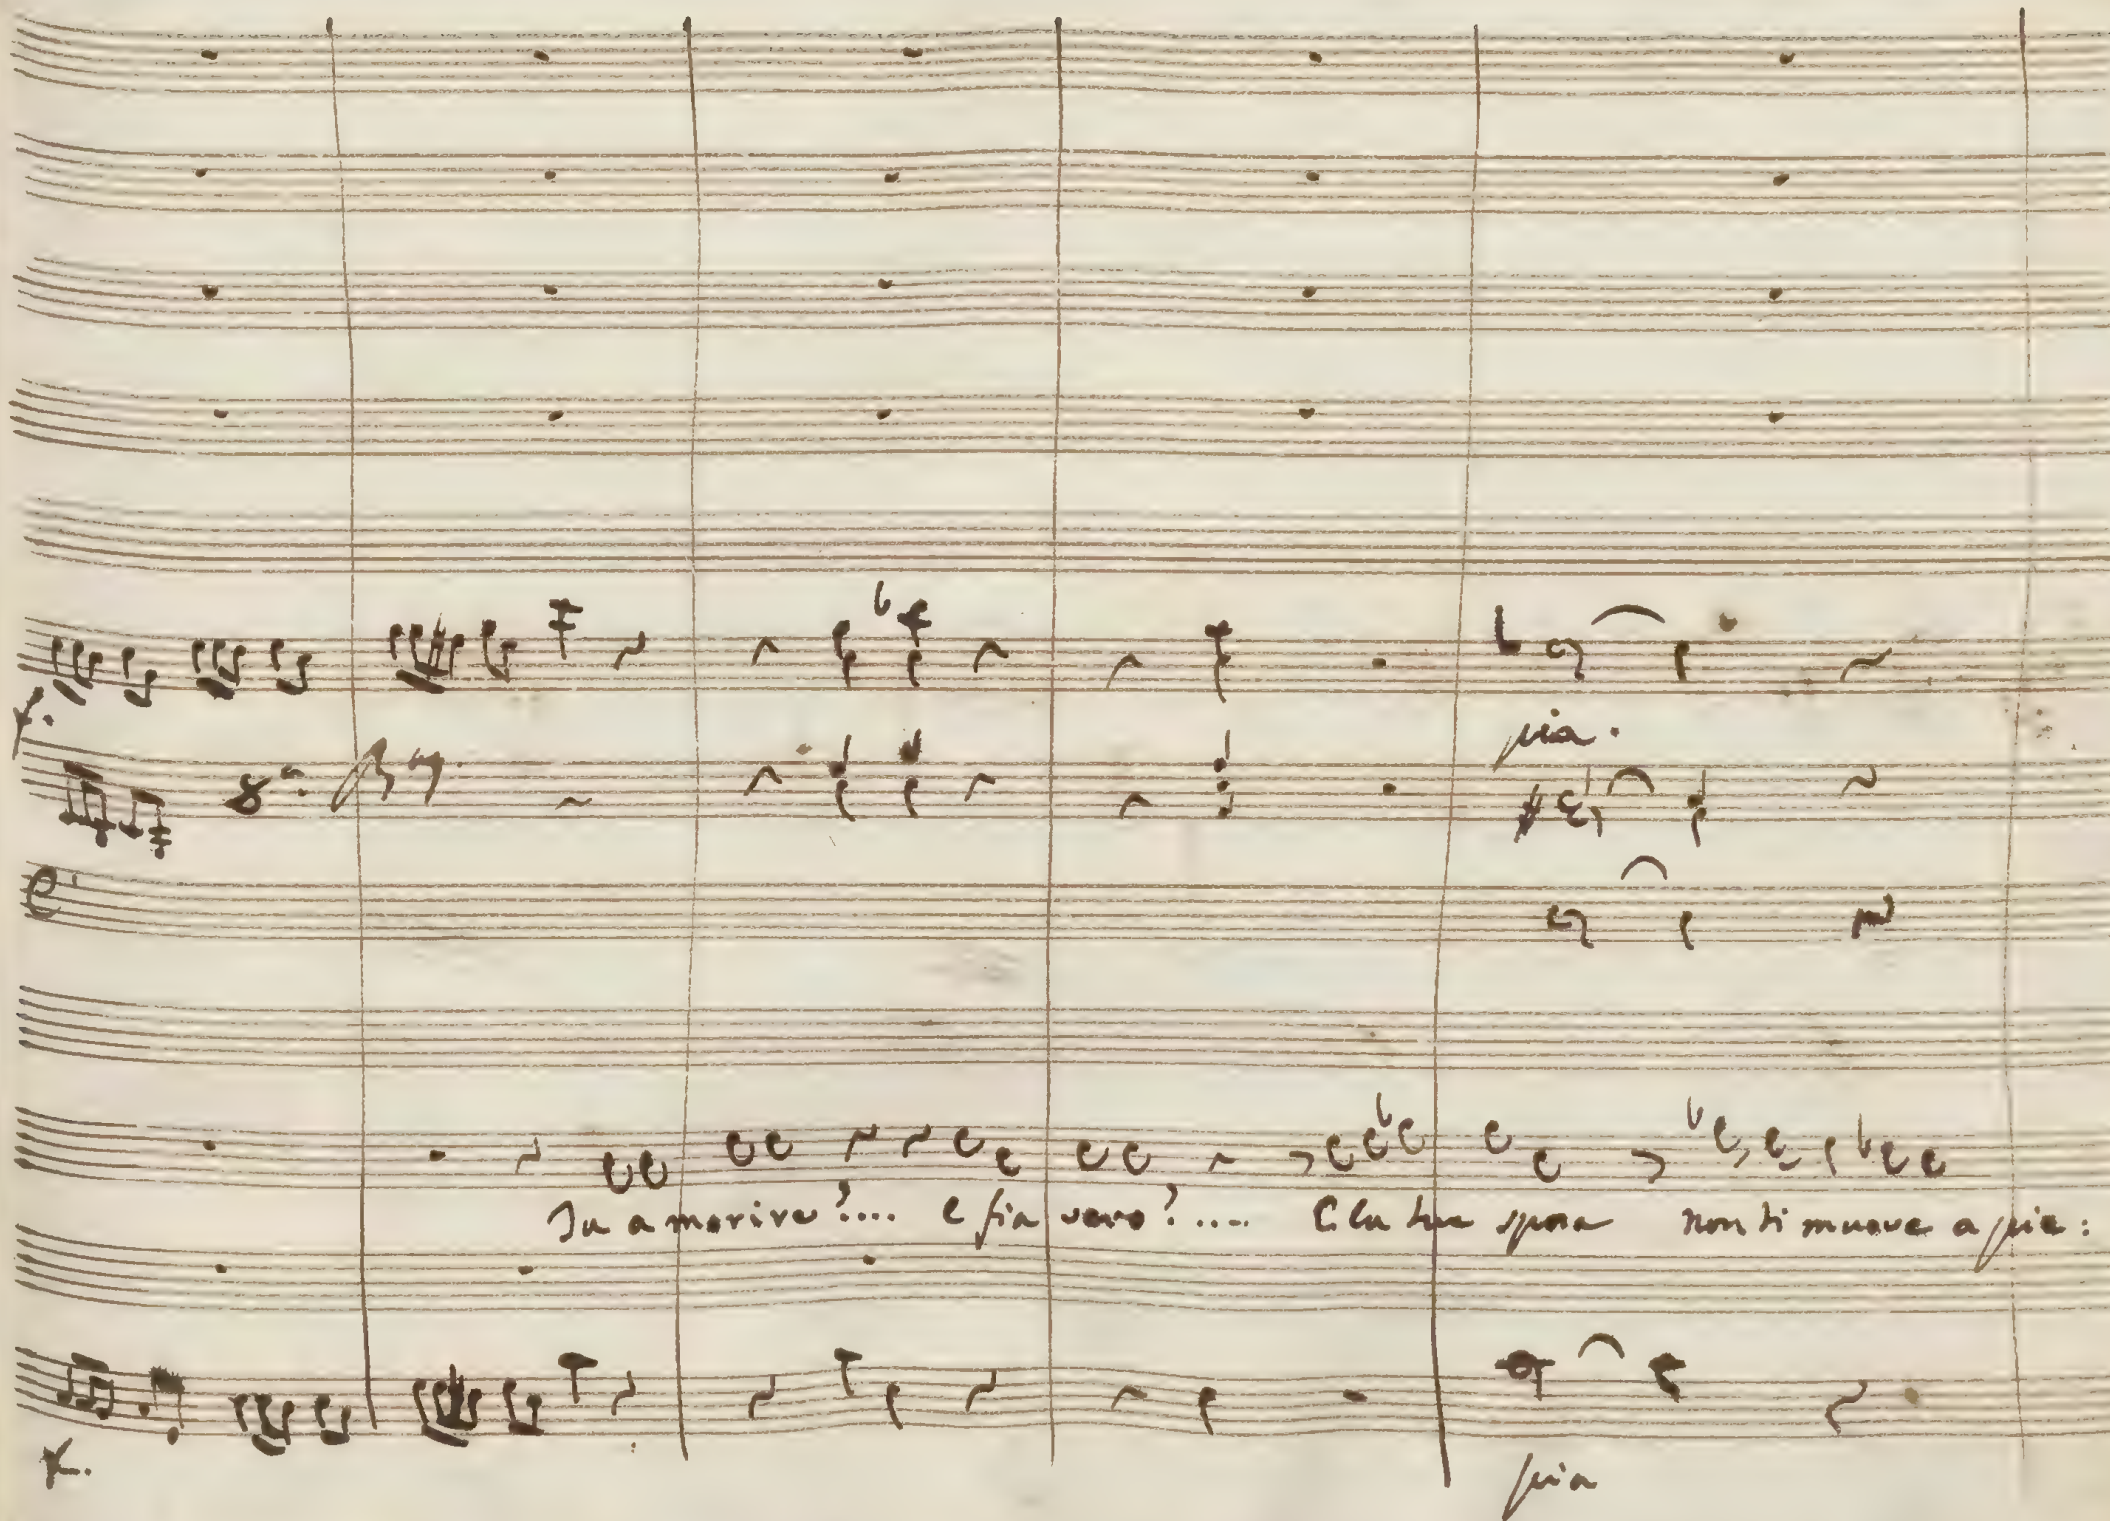 f.
pia.
8ª
Tu a morire?.... e fia vero?.... E la tua sposa non ti muove a pie:
f.
pia